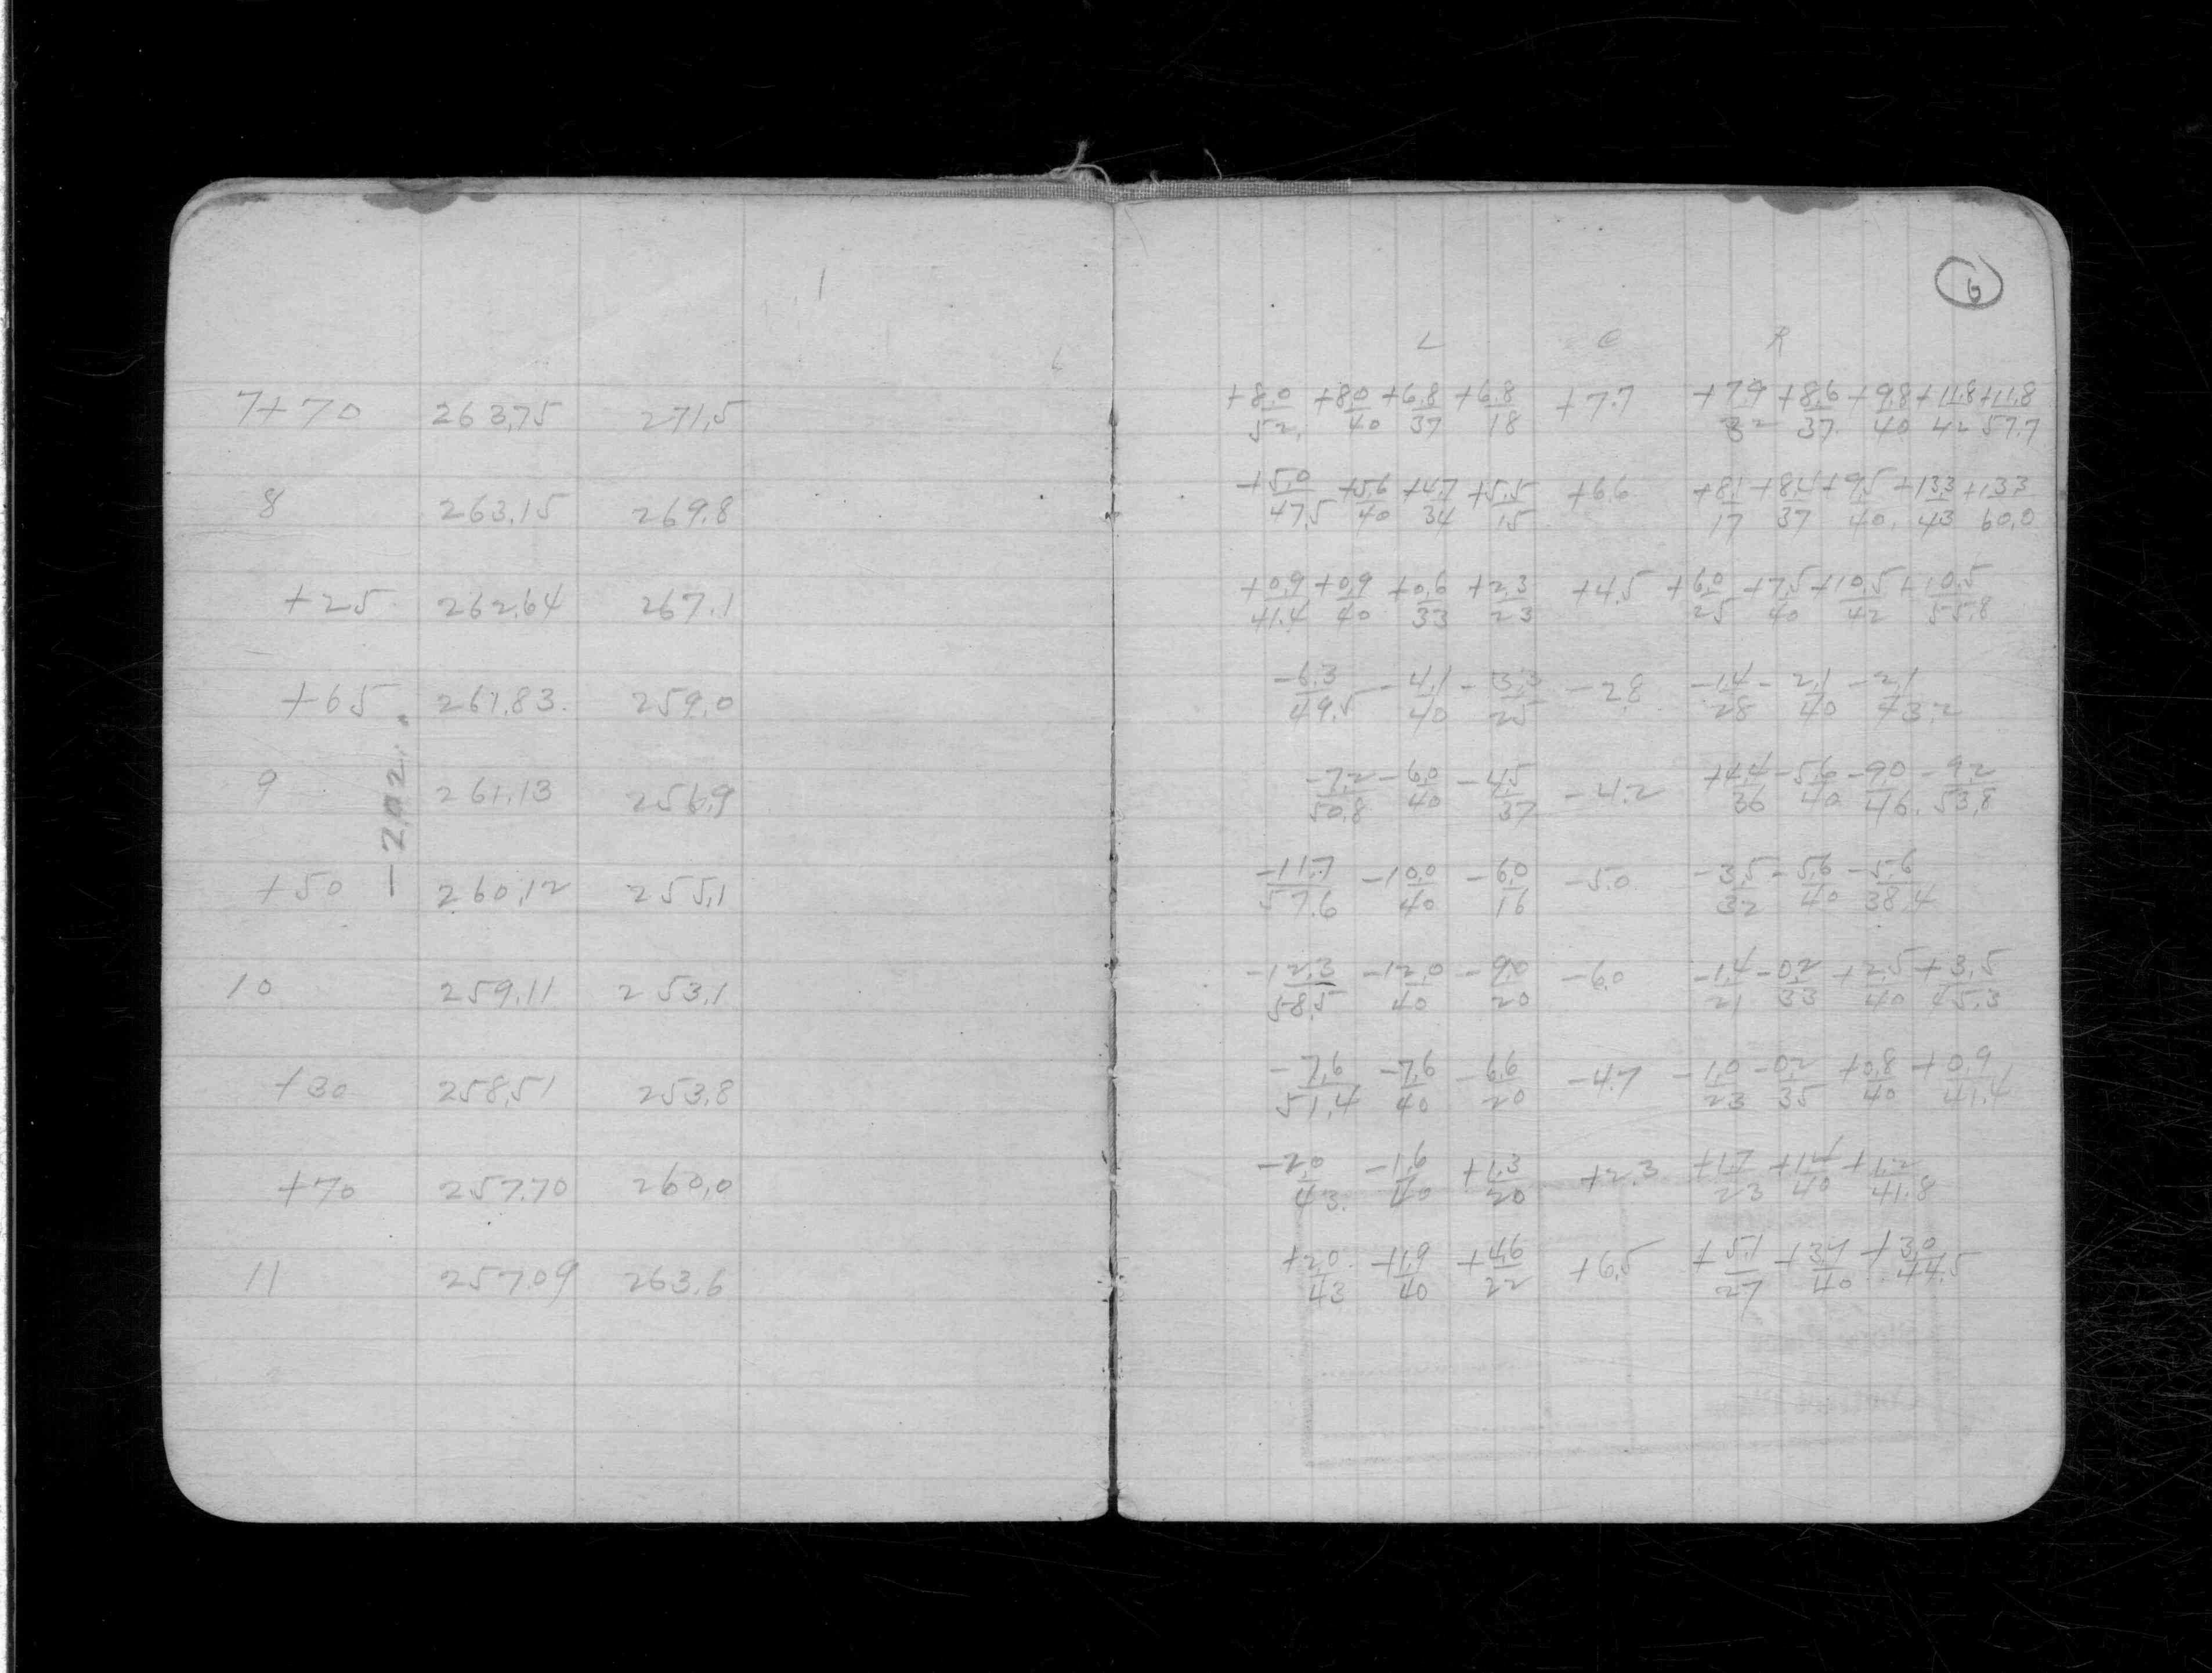 6
L C R
7+70 263.75 271.5 +8.0/52. +8.0/40 +6.8/37 +6.8/18 +7.7 +7.9/32 +8.6/37. +9.8/40 +11.8/42 +11.8/57.7
8 263.15 269.8 +5.0/47.5 +5.6/40 +4.7/34 +5.5/15 +6.6 +8.1/17 +8.4/37 +9.5/40. +13.3/43 +13.3/60.0
+25 262.64 267.1 +0.9/41.4 +0.9/40 +0.6/33 +2.3/23 +4.5 +6.0/25 +7.5/40 +10.5/42 +10.5/55.8
+65 261.83. 259.0 -6.3/49.5 -4.1/40 -3.3/25 -2.8 -1.4/28 -2.1/40 -2.1/43.2
9 261.13 256.9 -7.2/50.8 -6.0/40 -4.5/37 -4.2 +4.4/36 -5.6/40 -9.0/46. -9.2/53.8
-2.02
+50 260.12 255.1 -11.7/57.6 -10.0/40 -6.0/16 -5.0 -3.5/32 -5.6/40 -5.6/38.4
10 259.11 253.1 -12.3/58.5 -12.0/40 -9.0/20 -6.0 -1.4/21 -0.2/33 +2.5/40 +3.5/45.3
+30 258.51 253.8 -7.6/51.4 -7.6/40 -6.6/20 -4.7 -1.0/23 -0.2/35 +0.8/40 +0.9/41.4
+70 257.70 260.0 -2.0/43. -1.6/40 +1.3/20 +2.3 +1.7/23 +1.4/40 +1.2/41.8
11 257.09 263.6 +2.0/43 +1.9/40 +4.6/22 +6.5 +5.1/27 +3.4/40 +3.0/44.5